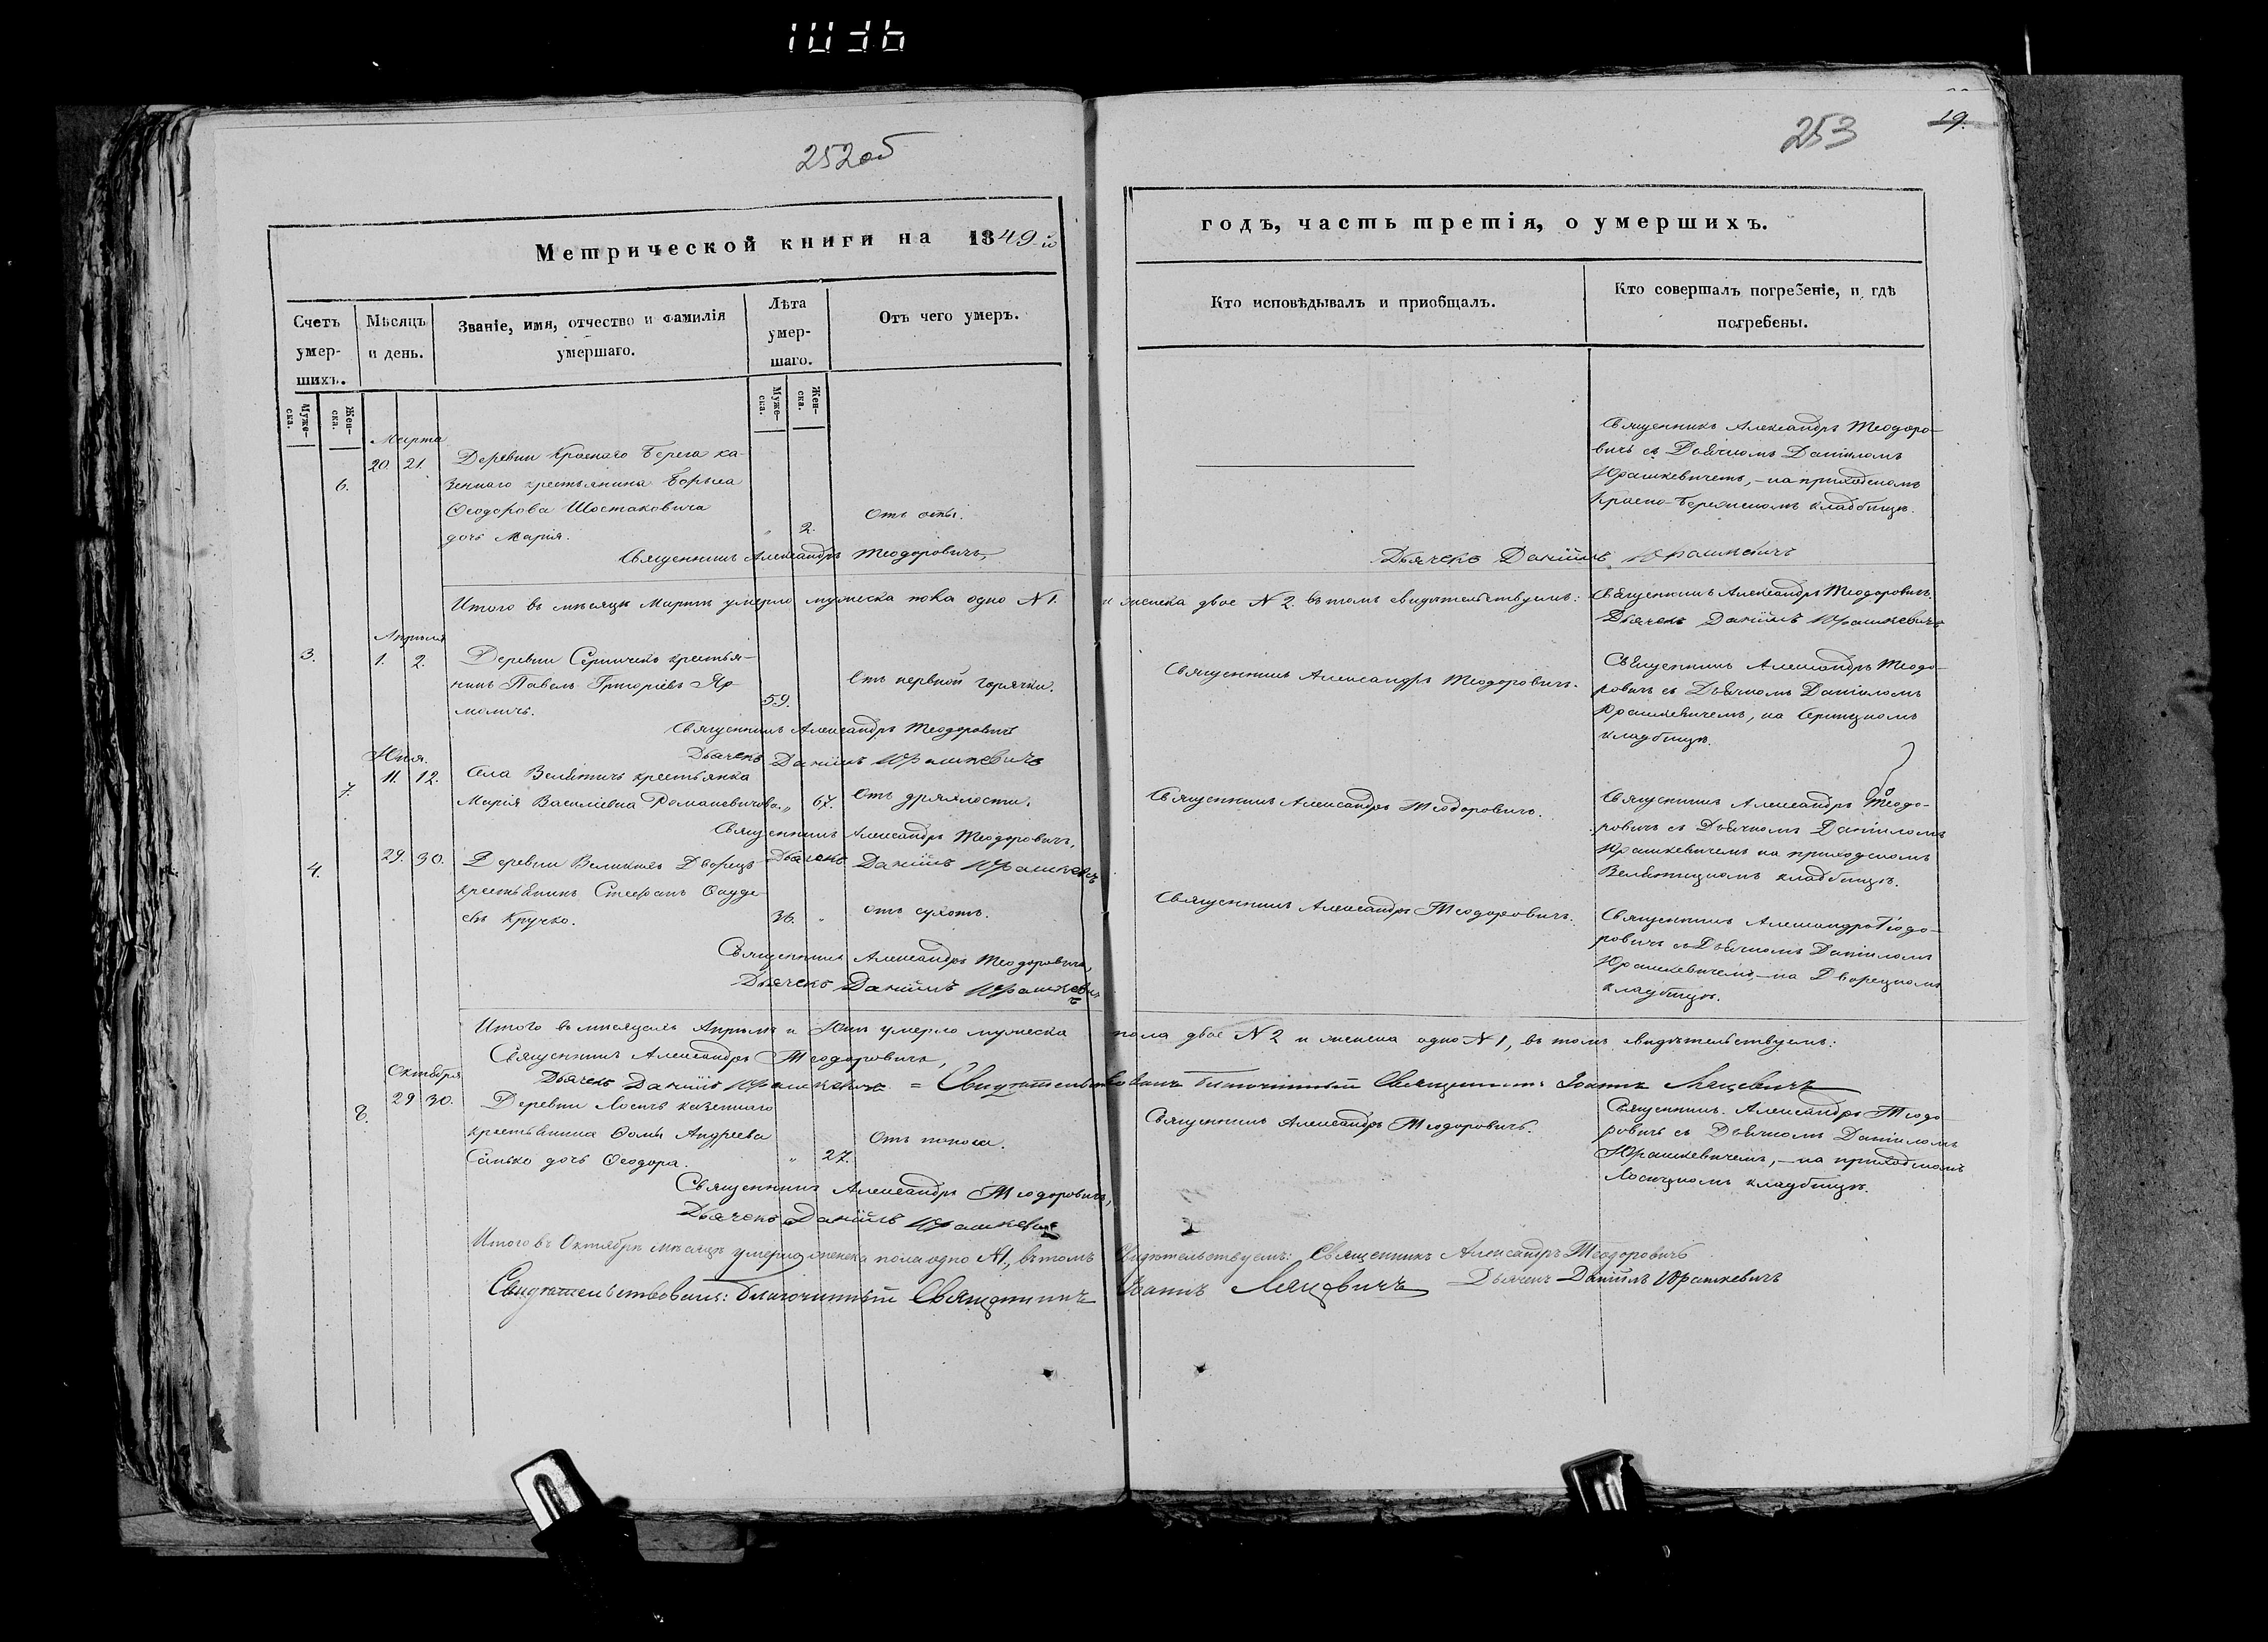 252об
253
19.
Метрической книги на 1849-й
годъ, часть третія, о умершихъ.
Счетъ умер-
шихъ.
Мѣсяцъ
и день.
Званіе, имя, отчество и фамилія
умершаго.
Лѣта
умер-
шаго.
Отъ чего умеръ.
Кто исповѣдывалъ и пріобщалъ.
Кто совершалъ погребеніе, и гдѣ
погребены.
Муже-
ска.
Жен-
ска.
Муже-
ска.
Жен-
ска.
Марта
6. 20. 21. Деревни Краснаго Берега ка-
зеннаго крестьянина
Ѳеодорова Шостаковича
дочь Марія. „ 2. Отъ оспы.
Священникъ Александръ Теодоро-
вичъ съ Дьячкомъ Даніиломъ
Юрашкевичемъ, – на приходскомъ
Красно-Бережскомъ кладбищѣ.
Священникъ Александръ Теодоровичъ,
Дьячекъ Даніилъ Юрашкевичъ
Итого въ мѣсяцѣ Мартѣ умерло мужеска пола одно N 1. и женска двое N 2. въ томъ свидѣтельствуемъ: Священникъ Александръ Теодоровичъ.
Дьячекъ Даніилъ Юрашкевичъ
Апрѣля
3. 1. 2. Деревни крестья-
нинъ Павелъ Григоріевъ Яр-
моличъ. 59. Отъ нервной горячки.
Священникъ Александръ Теодоровичъ.
Священникъ Александръ Теодо-
ровичъ съ Дьячкомъ Даніиломъ
Юрашкевичемъ, на
кладбищѣ.
Священникъ Александръ Теодоровичъ
Дьячекъ Даніилъ Юрашкевичъ
7. 11. 12. Села Велятичъ крестьянка
Марія Василіевна Романовичова. „ 67. Отъ дряхлости.
Священникъ Александръ Теодоровичъ.
Священникъ Александръ Теодо-
ровичъ съ Дьячкомъ Даніиломъ
Юрашкевичемъ на приходскомъ
Велятицкомъ кладбищѣ.
Священникъ Александръ Теодоровичъ,
Дьячекъ Даніилъ Юрашкевичъ
4. 29. 30. Деревни
крестьянинъ Стефанъ
Кручко. 36. „ Отъ сухотъ.
Священникъ Александръ Теодоровичъ.
Священникъ Александръ Теодо-
ровичъ съ Дьячкомъ Даніиломъ
Юрашкевичемъ, – на Дворецкомъ
кладбищѣ.
Священникъ Александръ Теодоровичъ,
Дьячекъ Даніилъ Юрашкевичъ
Итого въ мѣсяцахъ Апрѣлѣ и умерло мужеска пола двое N 2 и женска одно N 1, въ томъ свидѣтельствуемъ:
Священникъ Александръ Теодоровичъ,
Дьячекъ Даніилъ Юрашкевичъ. = Свидѣтельствовалъ благочинный Священникъ Іоаннъ Ляцевичъ
Октября
8. 29 30. Деревни Лосичъ казеннаго
крестьянина Ѳомы Андреева
Санько дочь Ѳеодора. „ 27. Отъ поноса.
Священникъ Александръ Теодоровичъ.
Священникъ Александръ Теодо-
ровичъ съ Дьячкомъ Даніиломъ
Юрашкевичемъ, – на приходскомъ
Лосицкомъ кладбищѣ.
Священникъ Александръ Теодоровичъ,
Дьячекъ Даніилъ Юрашкевичъ
Итого въ Октябрѣ мѣсяцѣ умерло женска пола одно N 1., въ томъ свидѣтельствуемъ: Священникъ Александръ Теодоровичъ
Дьячекъ Даніилъ Юрашкевичъ
Свидѣтельствовалъ: благочинный Священникъ Іоаннъ Ляцевичъ